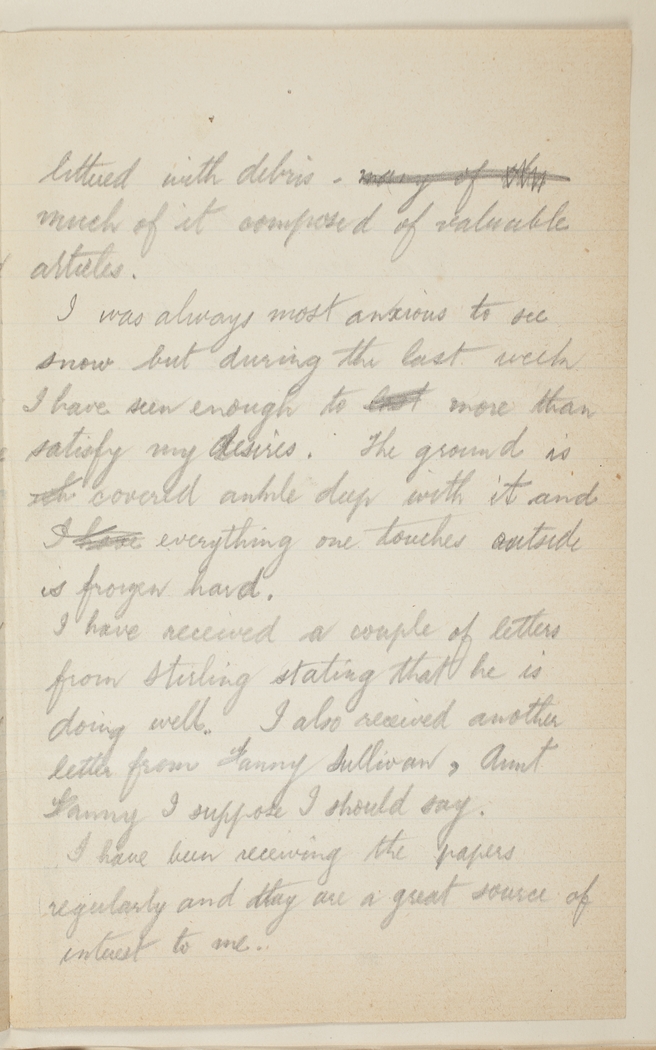 littered with debris - many of
much of it composed of valuable
articles.
I was always most anxious to see
snow but during the last week
I have seen enough to last more than
satisfy my desires. The ground is
covered ankle deep with it and
I have everything one touches outside
is frozen hard.
I have received a couple of letters
from Stirling stating that he is
doing well. I also received another
letter from Fanny Sullivan, Aunt
Fanny I suppose I should say.
I have been receiving the papers
regularly and they are a great source of
interest to me.